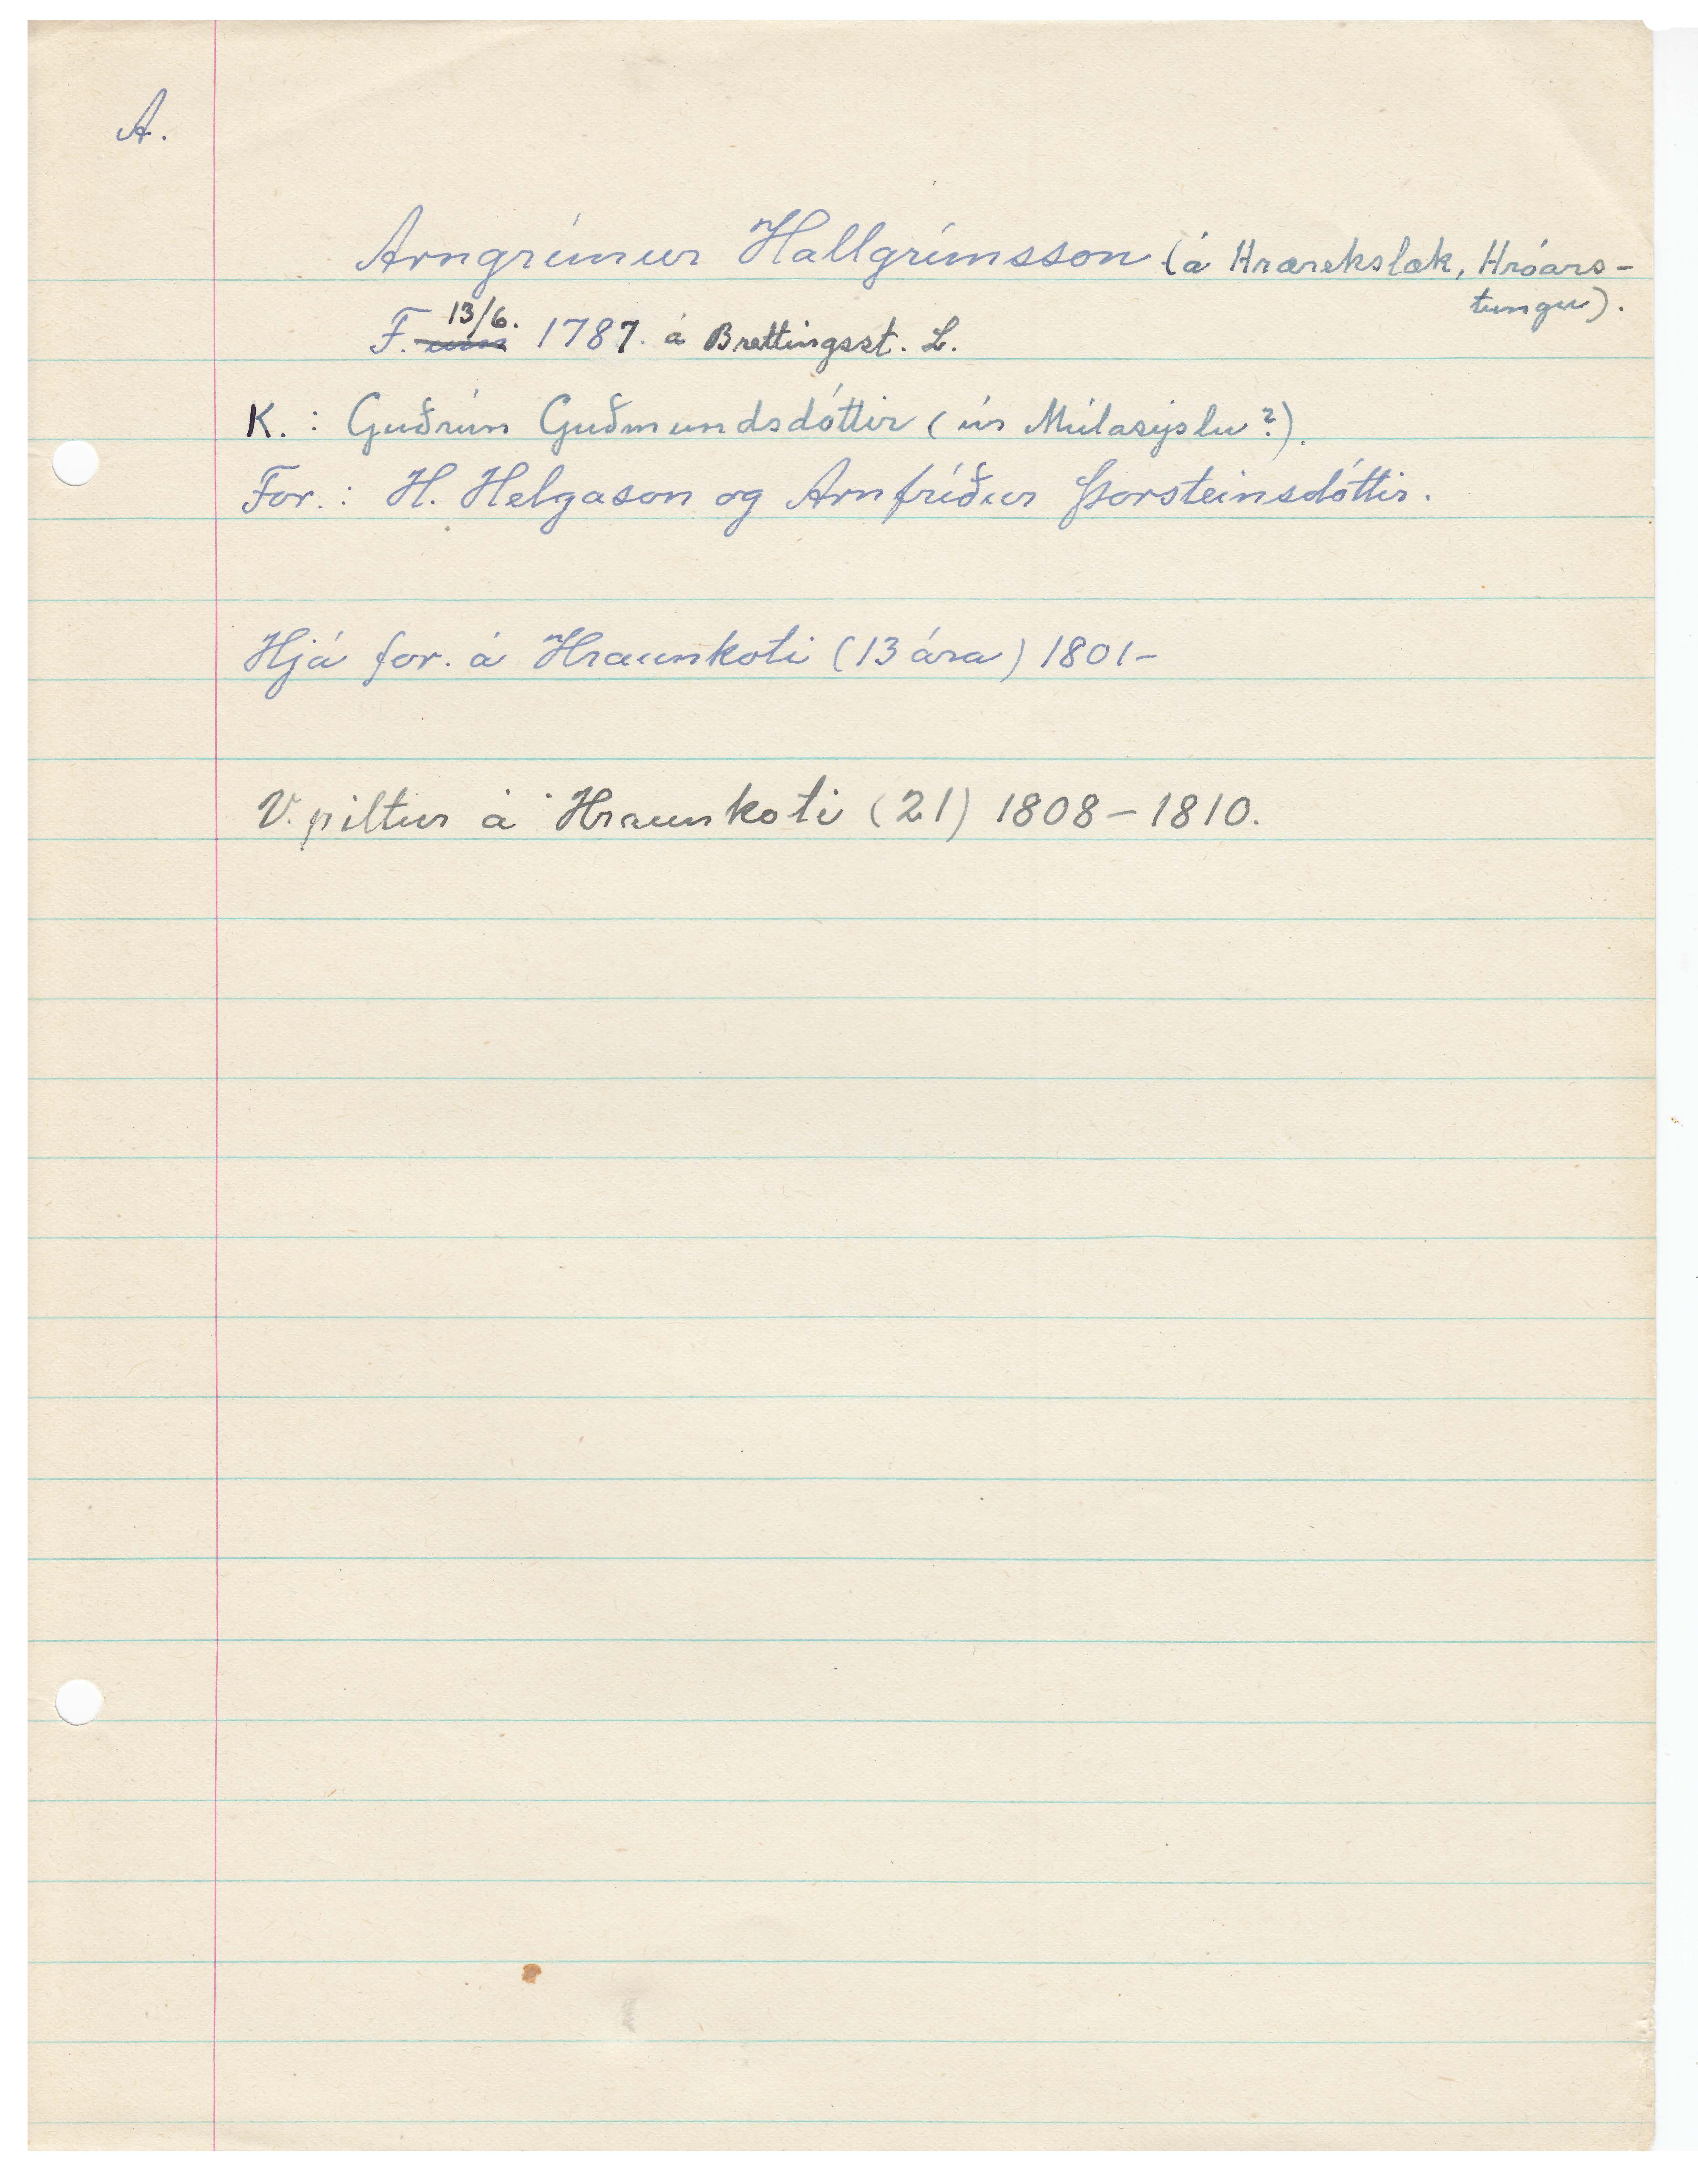 A.
Arngrímur Hallgrímsson (á Hrærekslæk, Hróars-
tungu).
F. 13/6. 1787. á Brettingsst. L.
K. : Guðrún Guðmundsdóttir (úr Múlasýslu?).
For. : H. Helgason og Arnfríður Þorsteinsdóttir.
Hjá for. á Hraunkoti (13 ára) 1801-
V. piltur á Hraunkoti (21) 1808-1810.